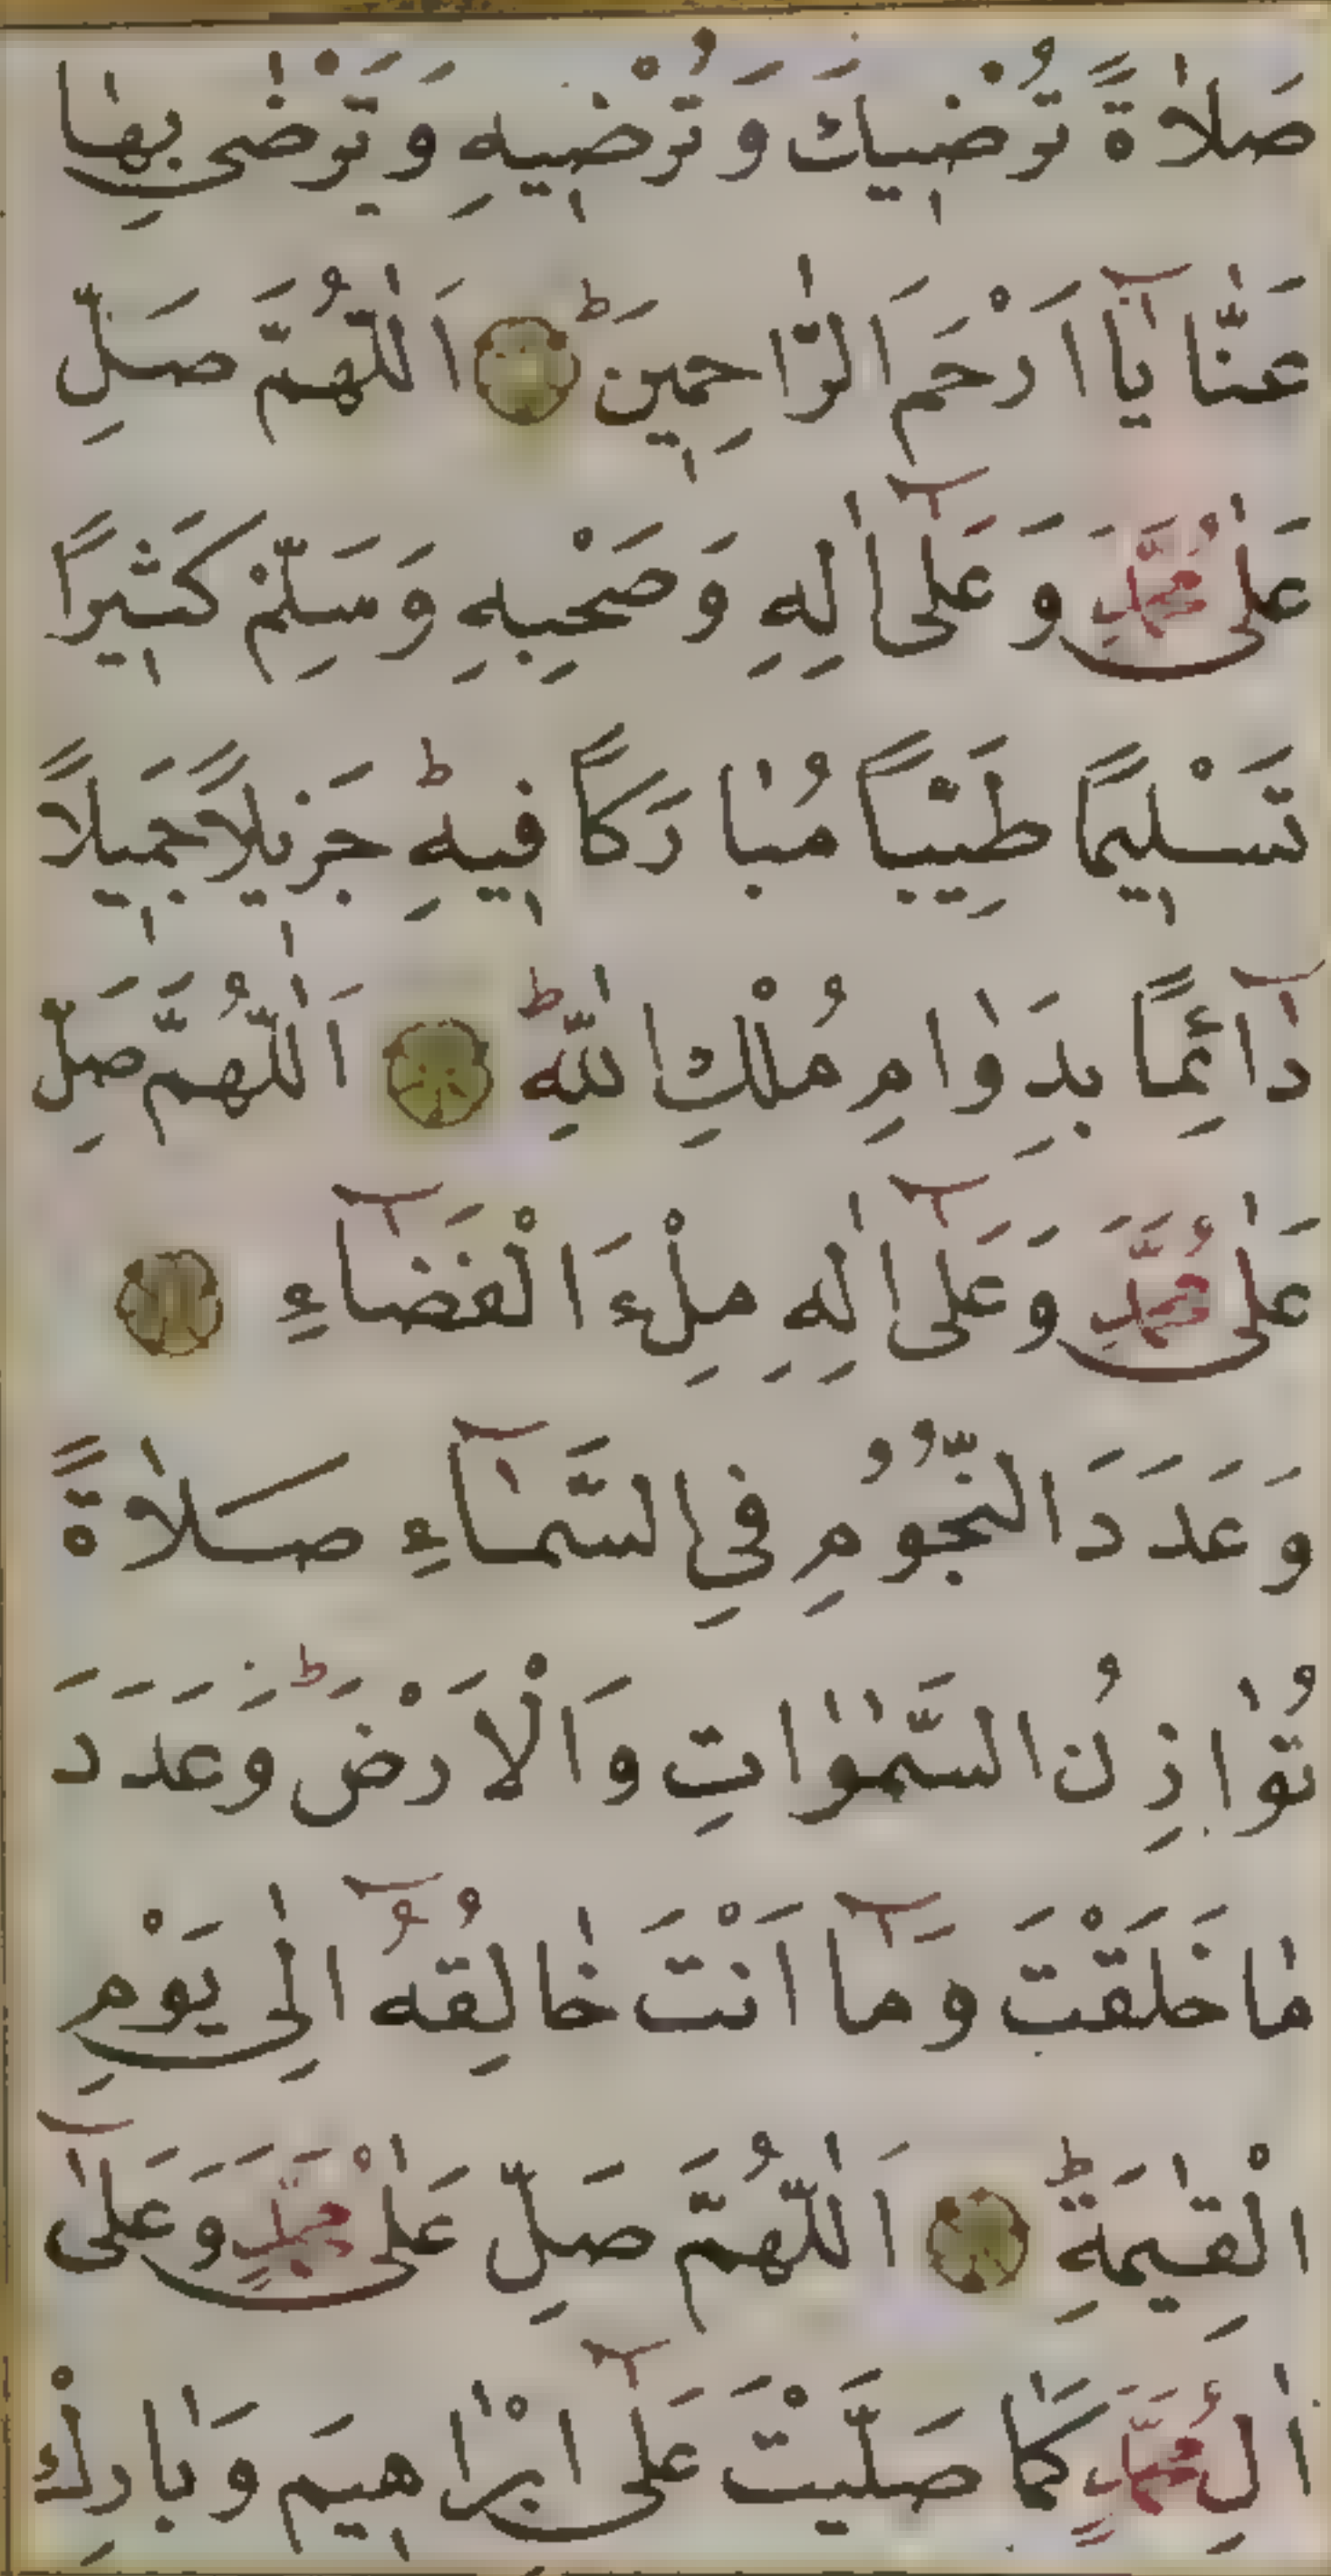 صَلَاةً تُرْضِيكَ وَتُرْضِيهِ وَتَرْضٰى بِهَا
عَنَّا يَا اَرْحَمَ الرَّاحِمِينَ ط اَللّٰهُمَّ صَلِّ
عَلٰى مُحَمَّدٍ وَعَلٰى اٰلِهِ وَصَحْبِهِ وَسَلِّمْ كَثِيرًا
تَسْلِيمًا طَيِّبًا مُبَارَكًا فِيهِ ط جَزِيلًا جَمِيلًا
دَائِمًا بِدَوَامِ مُلْكِ اللّٰهِ ط اَللّٰهُمَّ صَلِّ
عَلٰى مُحَمَّدٍ وَعَلٰى اٰلِهِ مِلْءَ الْفَضَاءِ
وَعَدَدَ النُّجُومِ فِي السَّمَاءِ صَلَاةً
تُوَازِنُ السَّمٰوَاتِ وَالْاَرْضَ ط وَعَدَدَ
مَا خَلَقْتَ وَمَا اَنْتَ خَالِقُهُ اِلٰى يَوْمِ
الْقِيٰمَةِ ط اَللّٰهُمَّ صَلِّ عَلٰى مُحَمَّدٍ وَعَلٰى
اٰلِ مُحَمَّدٍ كَمَا صَلَّيْتَ عَلٰى اِبْرَاهِيمَ وَبَارِكْ